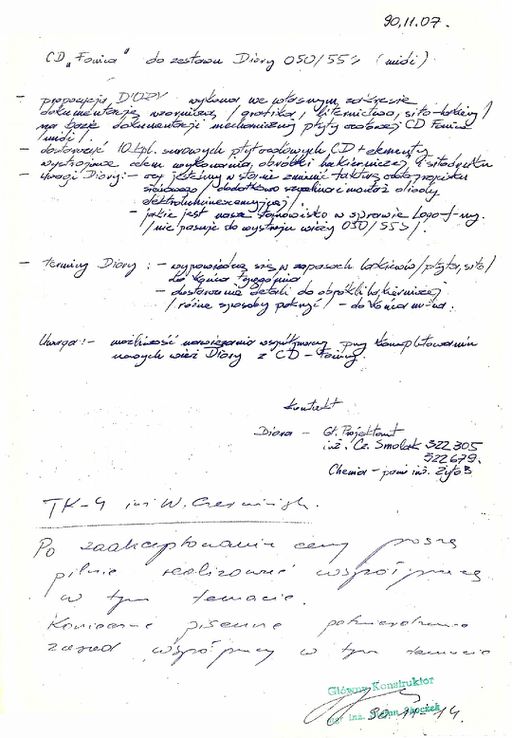 90.11.07.
CD „Fonica" do zestawu Diory 050/55> (midi)
- propozycja DIORY wykona we własnym zakresie
dokumentację wzorniczą /grafika, liternictwo, sito-lakiery/
na bazie dokumentacji mechanicznej płyty czołowej CD Fonica
/midi/.
- dostarczyć 10 kpl. surowych płyt czołowych CD + elementy
wystroju celem wykonania obróbki lakierniczej + sitodruku
- Uwagi Diory: - czy jesteśmy w stanie zmienić fakturę
sieciowego /dodatkowo i montaż diody
elektroluminescencyjnej/.
- jakie jest nasze stanowisko w sprawie Logo f-my.
/nie pasuje do wystroju wieży 050/55>/.
- terminy Diory: - wypowiedzą się w lakierów/płyta, sito/
do końca tygodnia
- dostarczenie detali do obróbki lakierniczej
/różne sposoby pokryć/ - do końca m-ca.
Uwaga: - możliwość nawiązania współpracy przy kompletowaniu
nowych wież Diory z CD - Fonicy.
Kontakt
Diora - Gł. Projektant
inż. Cz. Smolak 322 305
322679.
Chemia - pani inż. Zyto
TK-4 inż W.
Po zaakceptowaniu ceny proszę
pilnie realizować współpracę
w tym temacie.
Konieczne pisemne potwierdzenie
zasad współpracy w tym temacie
Główny Konstruktor
mgr inż.
90-11-14